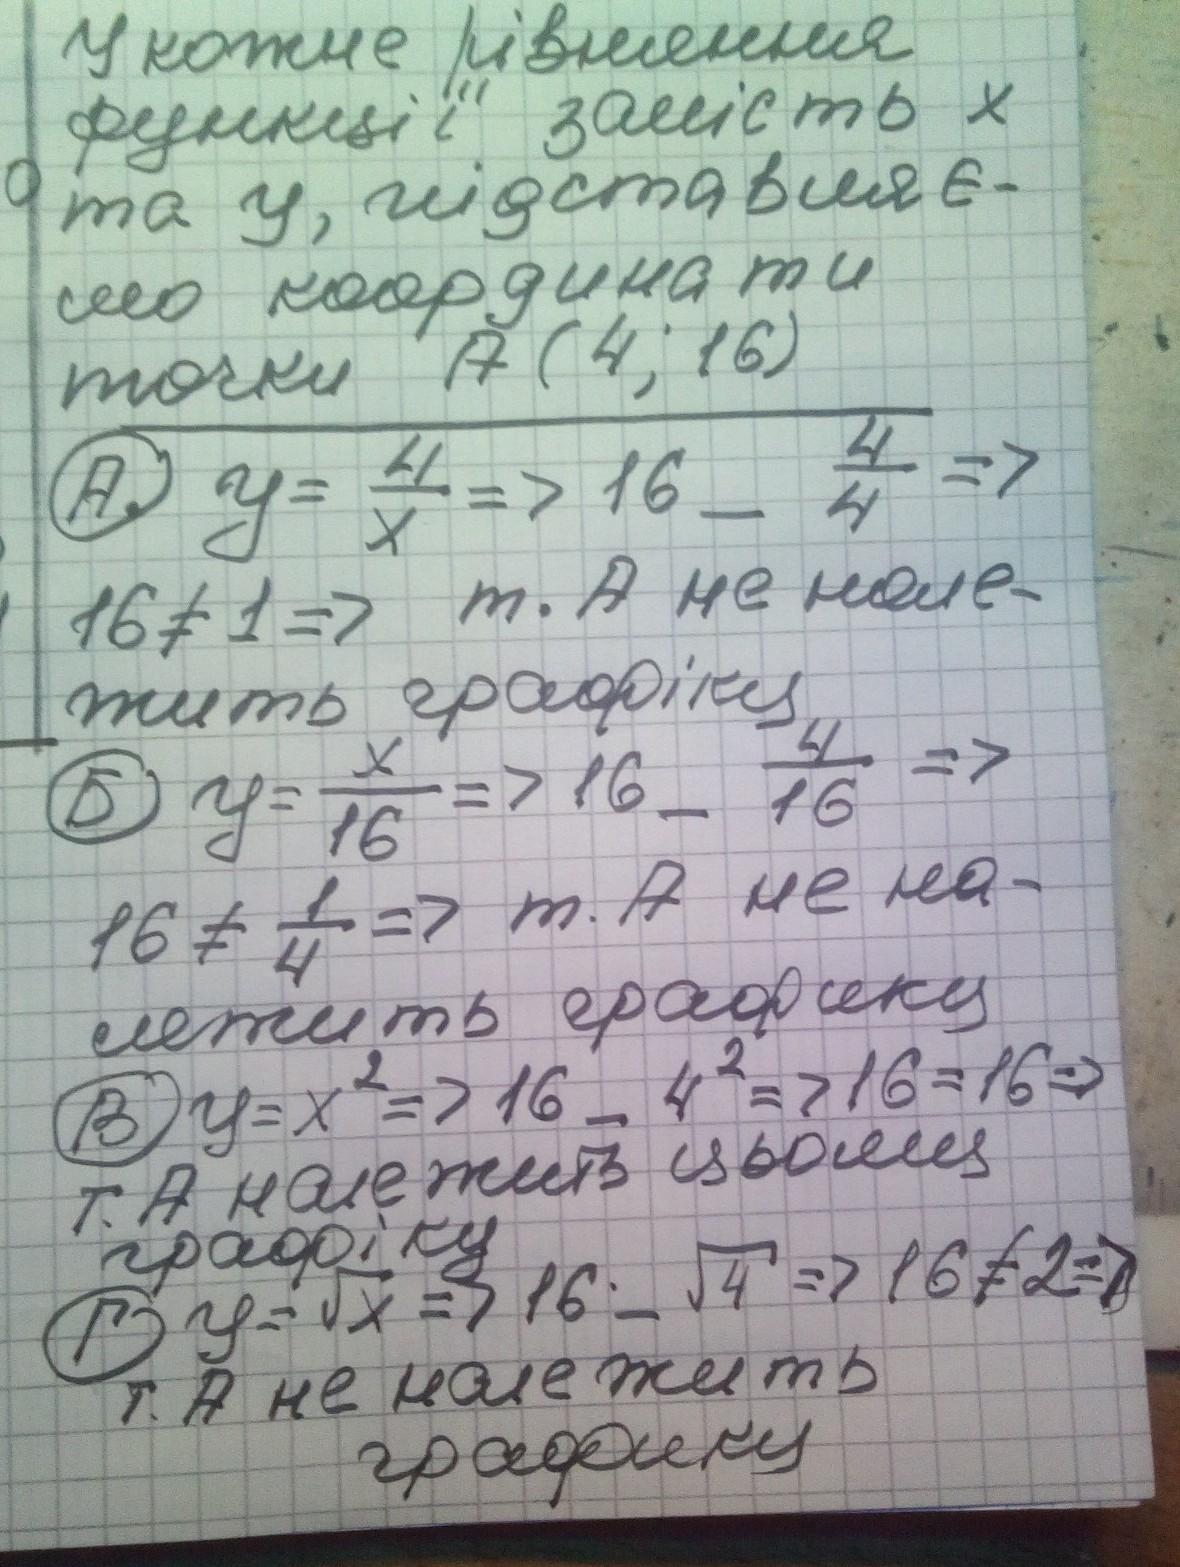 У кожне рівняння
функції замість x
та y, підставляє-
мо координати
точки A (4; 16)
А. y = 4/x => 16 _ 4/4 =>
16 ≠ 1 => т. A не нале-
жить графіку
Б y = x/16 => 16 _ 4/16 =>
16 ≠ 1/4 => т. A не на-
лежить графику
В y = x² => 16 _ 4² => 16 = 16 =>
т. A належить цьому
графіку
Г y = √x => 16 _ √4 => 16 ≠ 2 =>
т. A не належить
графику